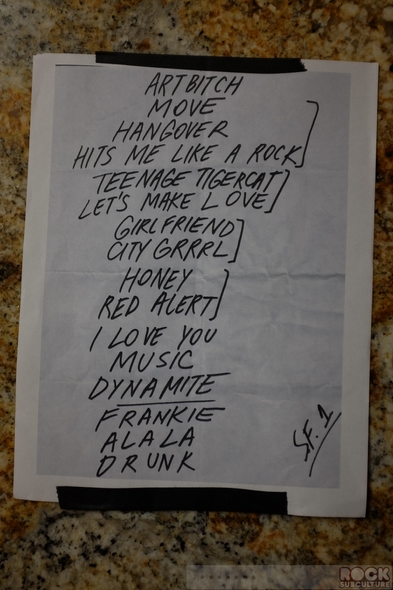 ARTBITCH
MOVE
HANGOVER
HITS ME LIKE A ROCK
TEENAGE TIGERCAT
LET'S MAKE LOVE
GIRLFRIEND
CITY GRRRL
HONEY
RED ALERT
I LOVE YOU
MUSIC
DYNAMITE
FRANKIE
ALALA
DRUNK
SF. 1
ROCK
SUBCULTURE